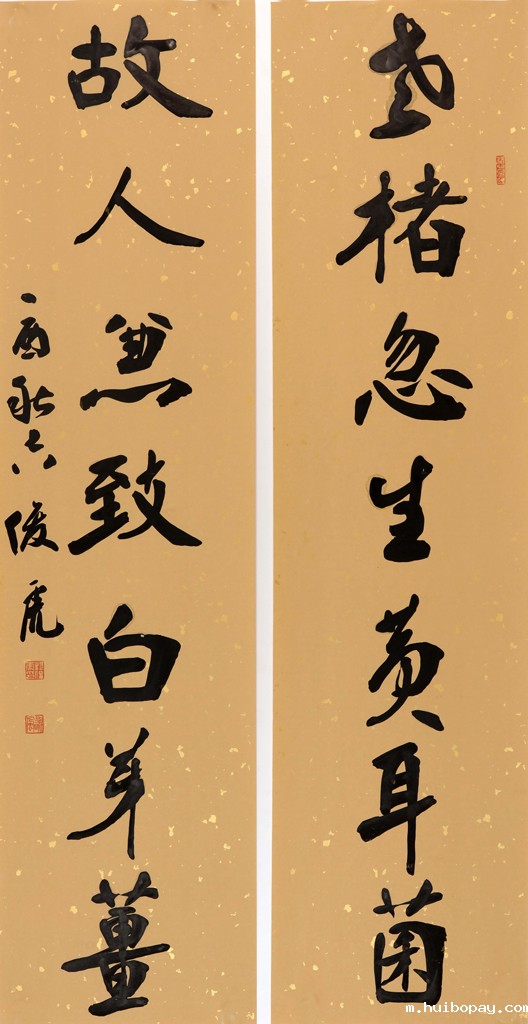 老楮忽生黄耳菌
故人兼致白芽薑
酉秋 俊虎
m.huibopay.com